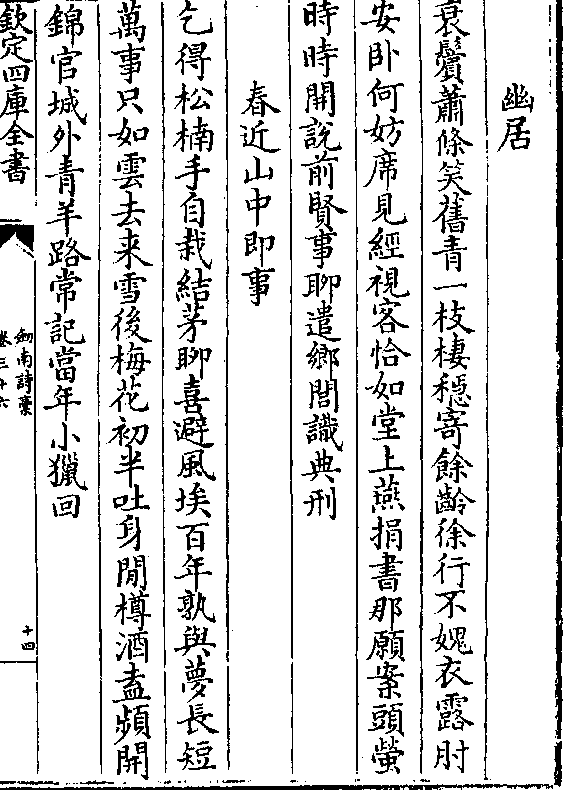 幽居
衰鬢蕭條笑舊青一枝棲穩寄餘齡徐行不媿衣露肘
安卧何妨席見經視客恰如堂上燕捐書那願案頭螢
時時開說前賢事聊遣鄉閭識典刑
春近山中即事
乞得松楠手自栽結茅聊喜避風埃百年孰與夢長短
萬事只如雲去来雪後梅花初半吐身閒樽酒盍頻開
錦官城外青羊路常記當年小獵回
欽定四庫全書
劒南詩藁
卷三十六
十四